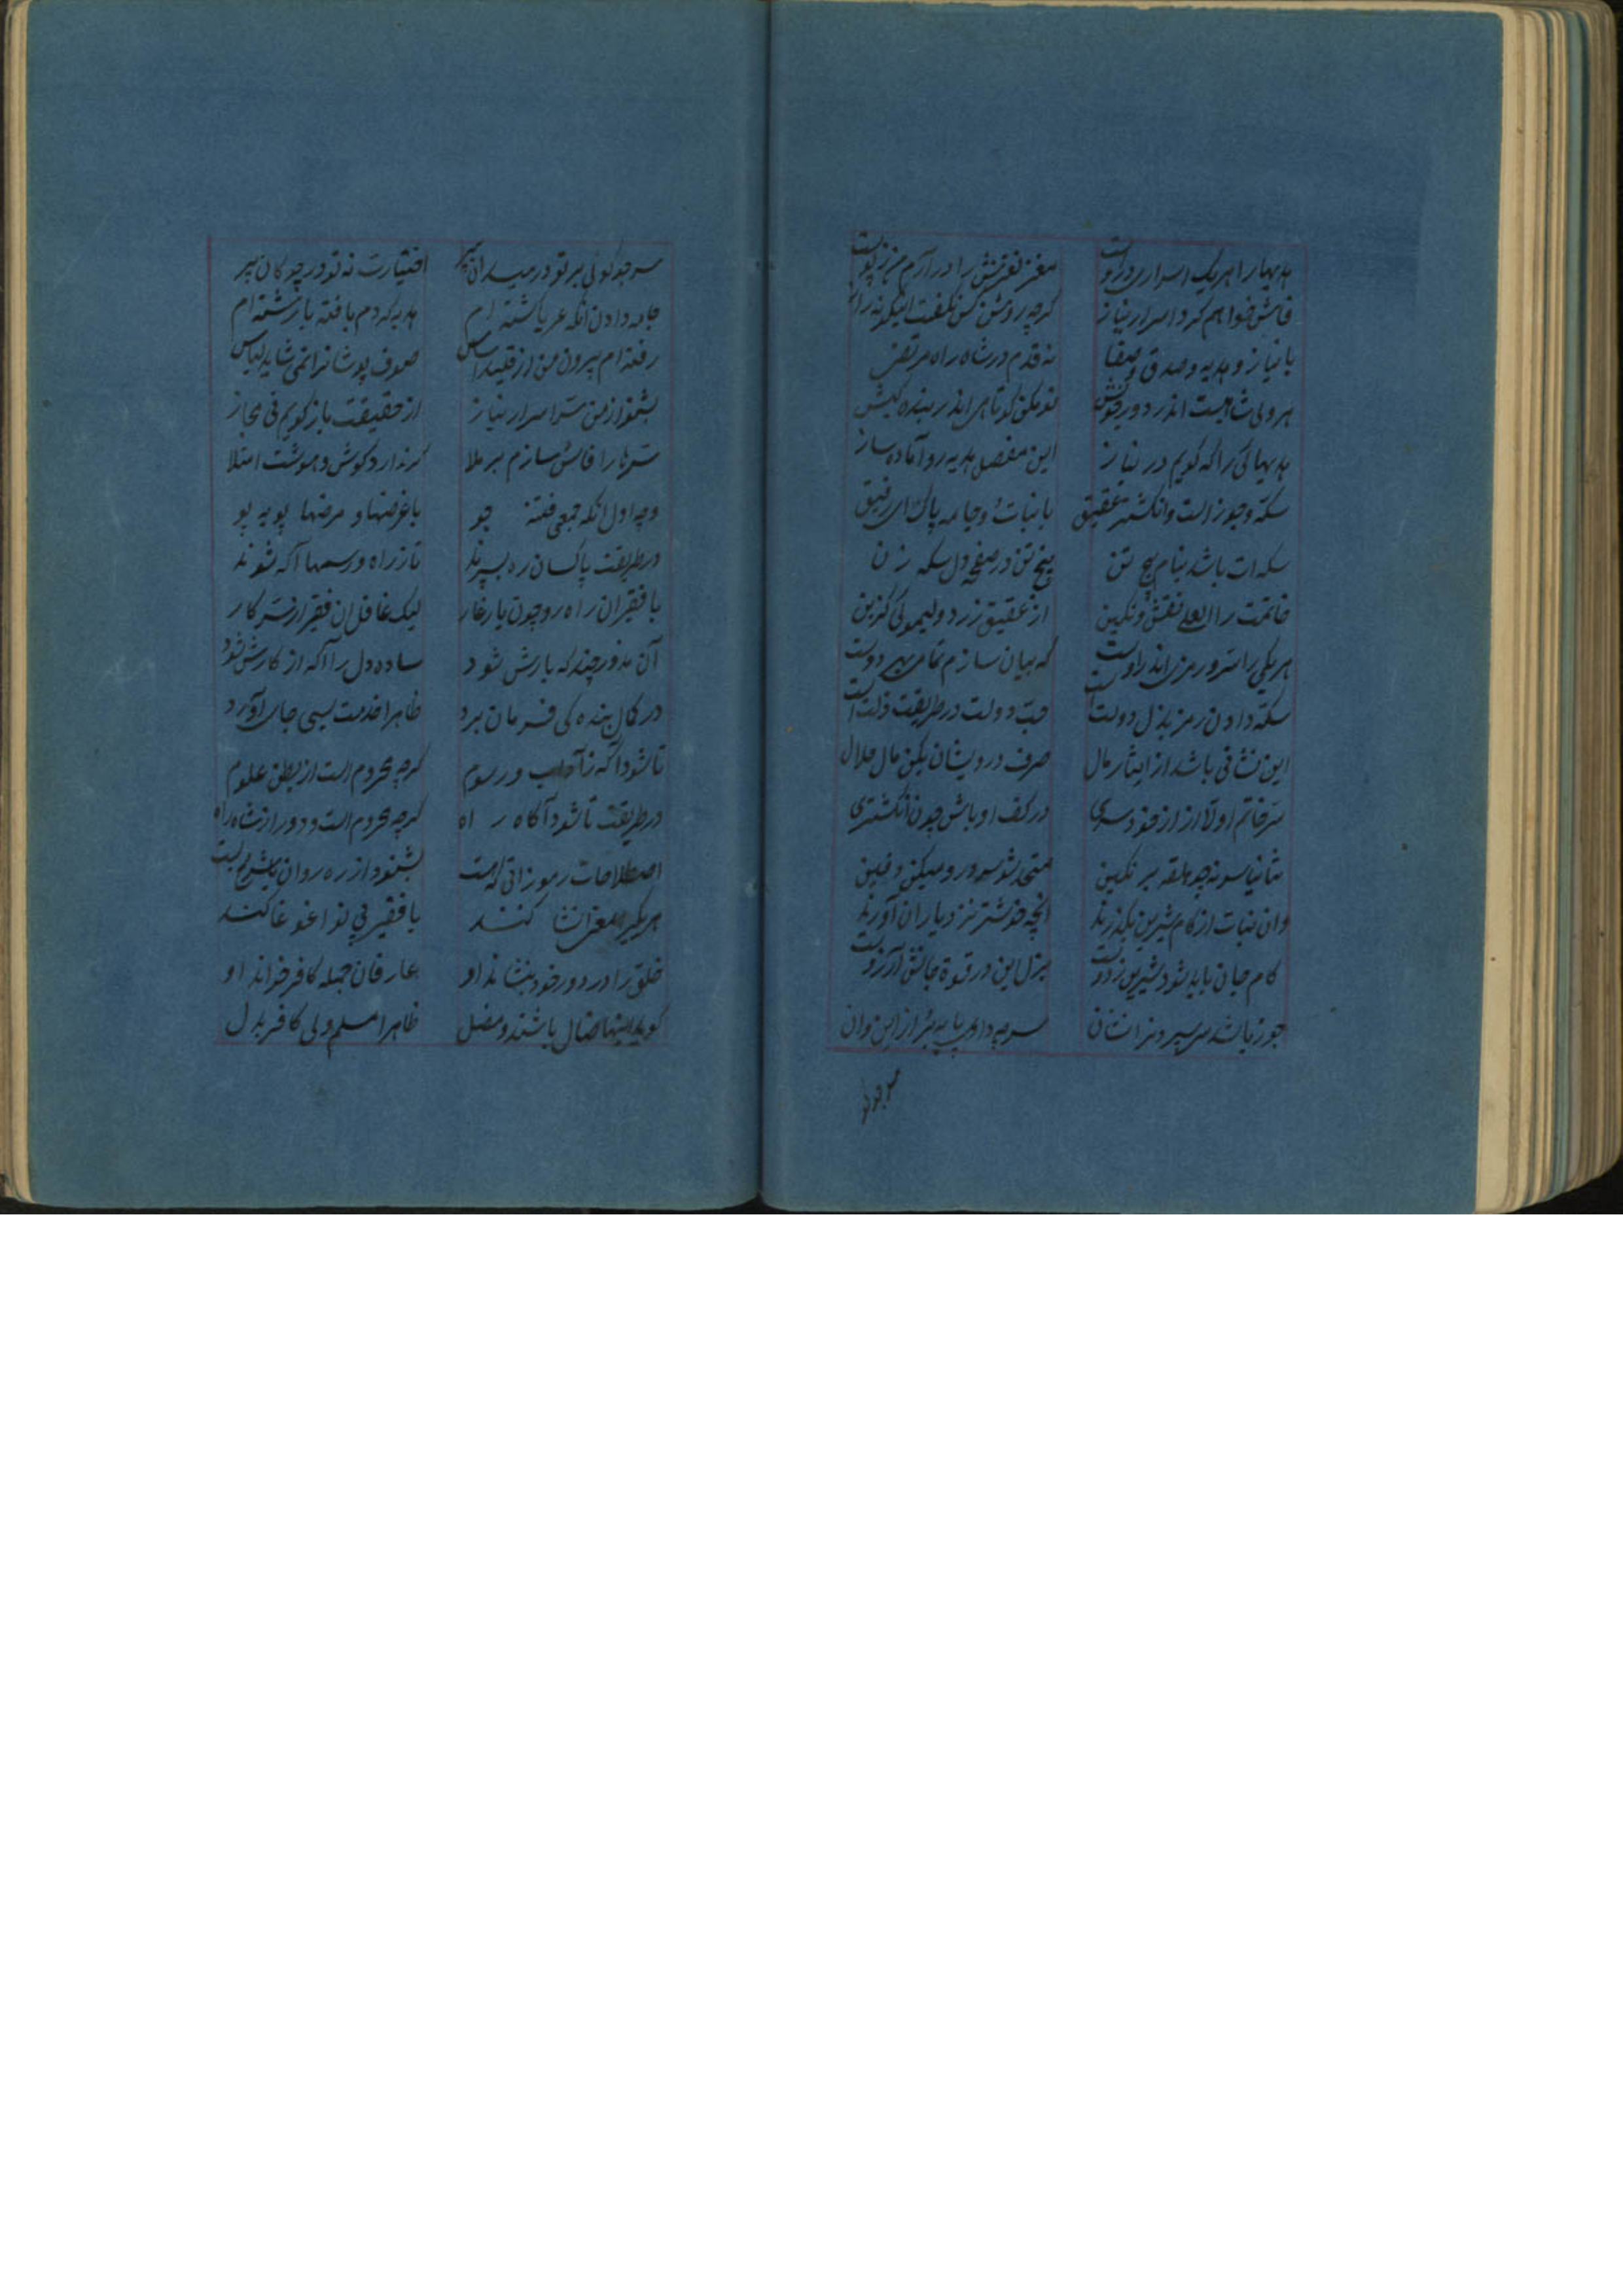 هدیها را هر یک اسراری دروست مغز نغزش را درآرم من ز پوست
فاش خواهم کرد اسرار نیاز کرچه روشن کس نکفت اینکونه راز
با نیاز و هدیه و صدق و صفا نه قدم در شاه راه مرتضی
هر ولی شاهست اندر دور خویش تو مکن کوتاهی اندر بنده کیش
هدیهائی را که کویم در نیاز این مفصل هدیه رو آماده ساز
سکه و جوز است و انکشتر عقیق با نبات و جامه پاک ای رفیق
سکه ات باشد بنام پنج تن پنج تن در صفحه دل سکه زن
خاتمت را العلی نقش و نکین از عقیق زرد و لیموئی کزین
هر یکی را سر و رمزی اندراوست که بیان سازم تمامی بهر دوست
سکه دادن رمز بذل دولت است حب دولت در طریقت ذلت است
این نشانی باشد از ایثار مال صرف درویشان بکن مال حلال
سر خاتم اولا از خود سری در کف او باش چون انکشتری
ثانیا سر نه چو حلقه بر نکین متحد شو سرور و میکن
وان نبات از کام شیرین بکذرند انچه خوشتر نزد یاران آورند
کام جان باید شود شیرین ز دوت بزل این در قوة جانش آرزوست
جوز باشد سر سپردنرا نشان سر چه دادی پا بپر از این وان
سر چو تو
سر چو کوئی بر تو در میدان پیر اختیارت نه تو در چوکان پیر
جامه دادن انکه عریا کشته ام هدیه کردم بافته یا رشته ام
رفته ام بیرون من از قید اساس صوف پوشانرا نمی شاید لباس
بشنو از من سر اسرار نیاز از حقیقت باز کویم نی مجاز
سرها را فاش سازم بر ملا کر ندارد کوش و هوشت امتلا
وجه اول انکه جمعی فتنه جو با غرضها و مرضها پو به پو
در طریقت پاکسان ره بسپرند تا ز راه و رسمها آکه شوند
با فقیران راه رو چون یار غار لیک غافل ان فقیر از سر کار
آن مذور چند که یارش شود ساده دل را آکه از کارش شود
در کمال بنده کی فرمان برد ظاهرا خدمت بسی جای آورد
تا شود آکه ز آداب و رسوم کرچه محروم است از بطن علوم
در طریقت تا شود آکاه راه کرچه محروم است و دور از شاه راه
اصطلاحات رموزاتی که هست بشنود از ره روان
هر یکیرا مغز انشا کنند با فقیر بی نوا غوغا کنند
خلق را در دور خود بنشاند او عارفان جمله کافر خواند او
کوید اینها ضال باشند و مضل ظاهرا مسلم ولی کافر بدل